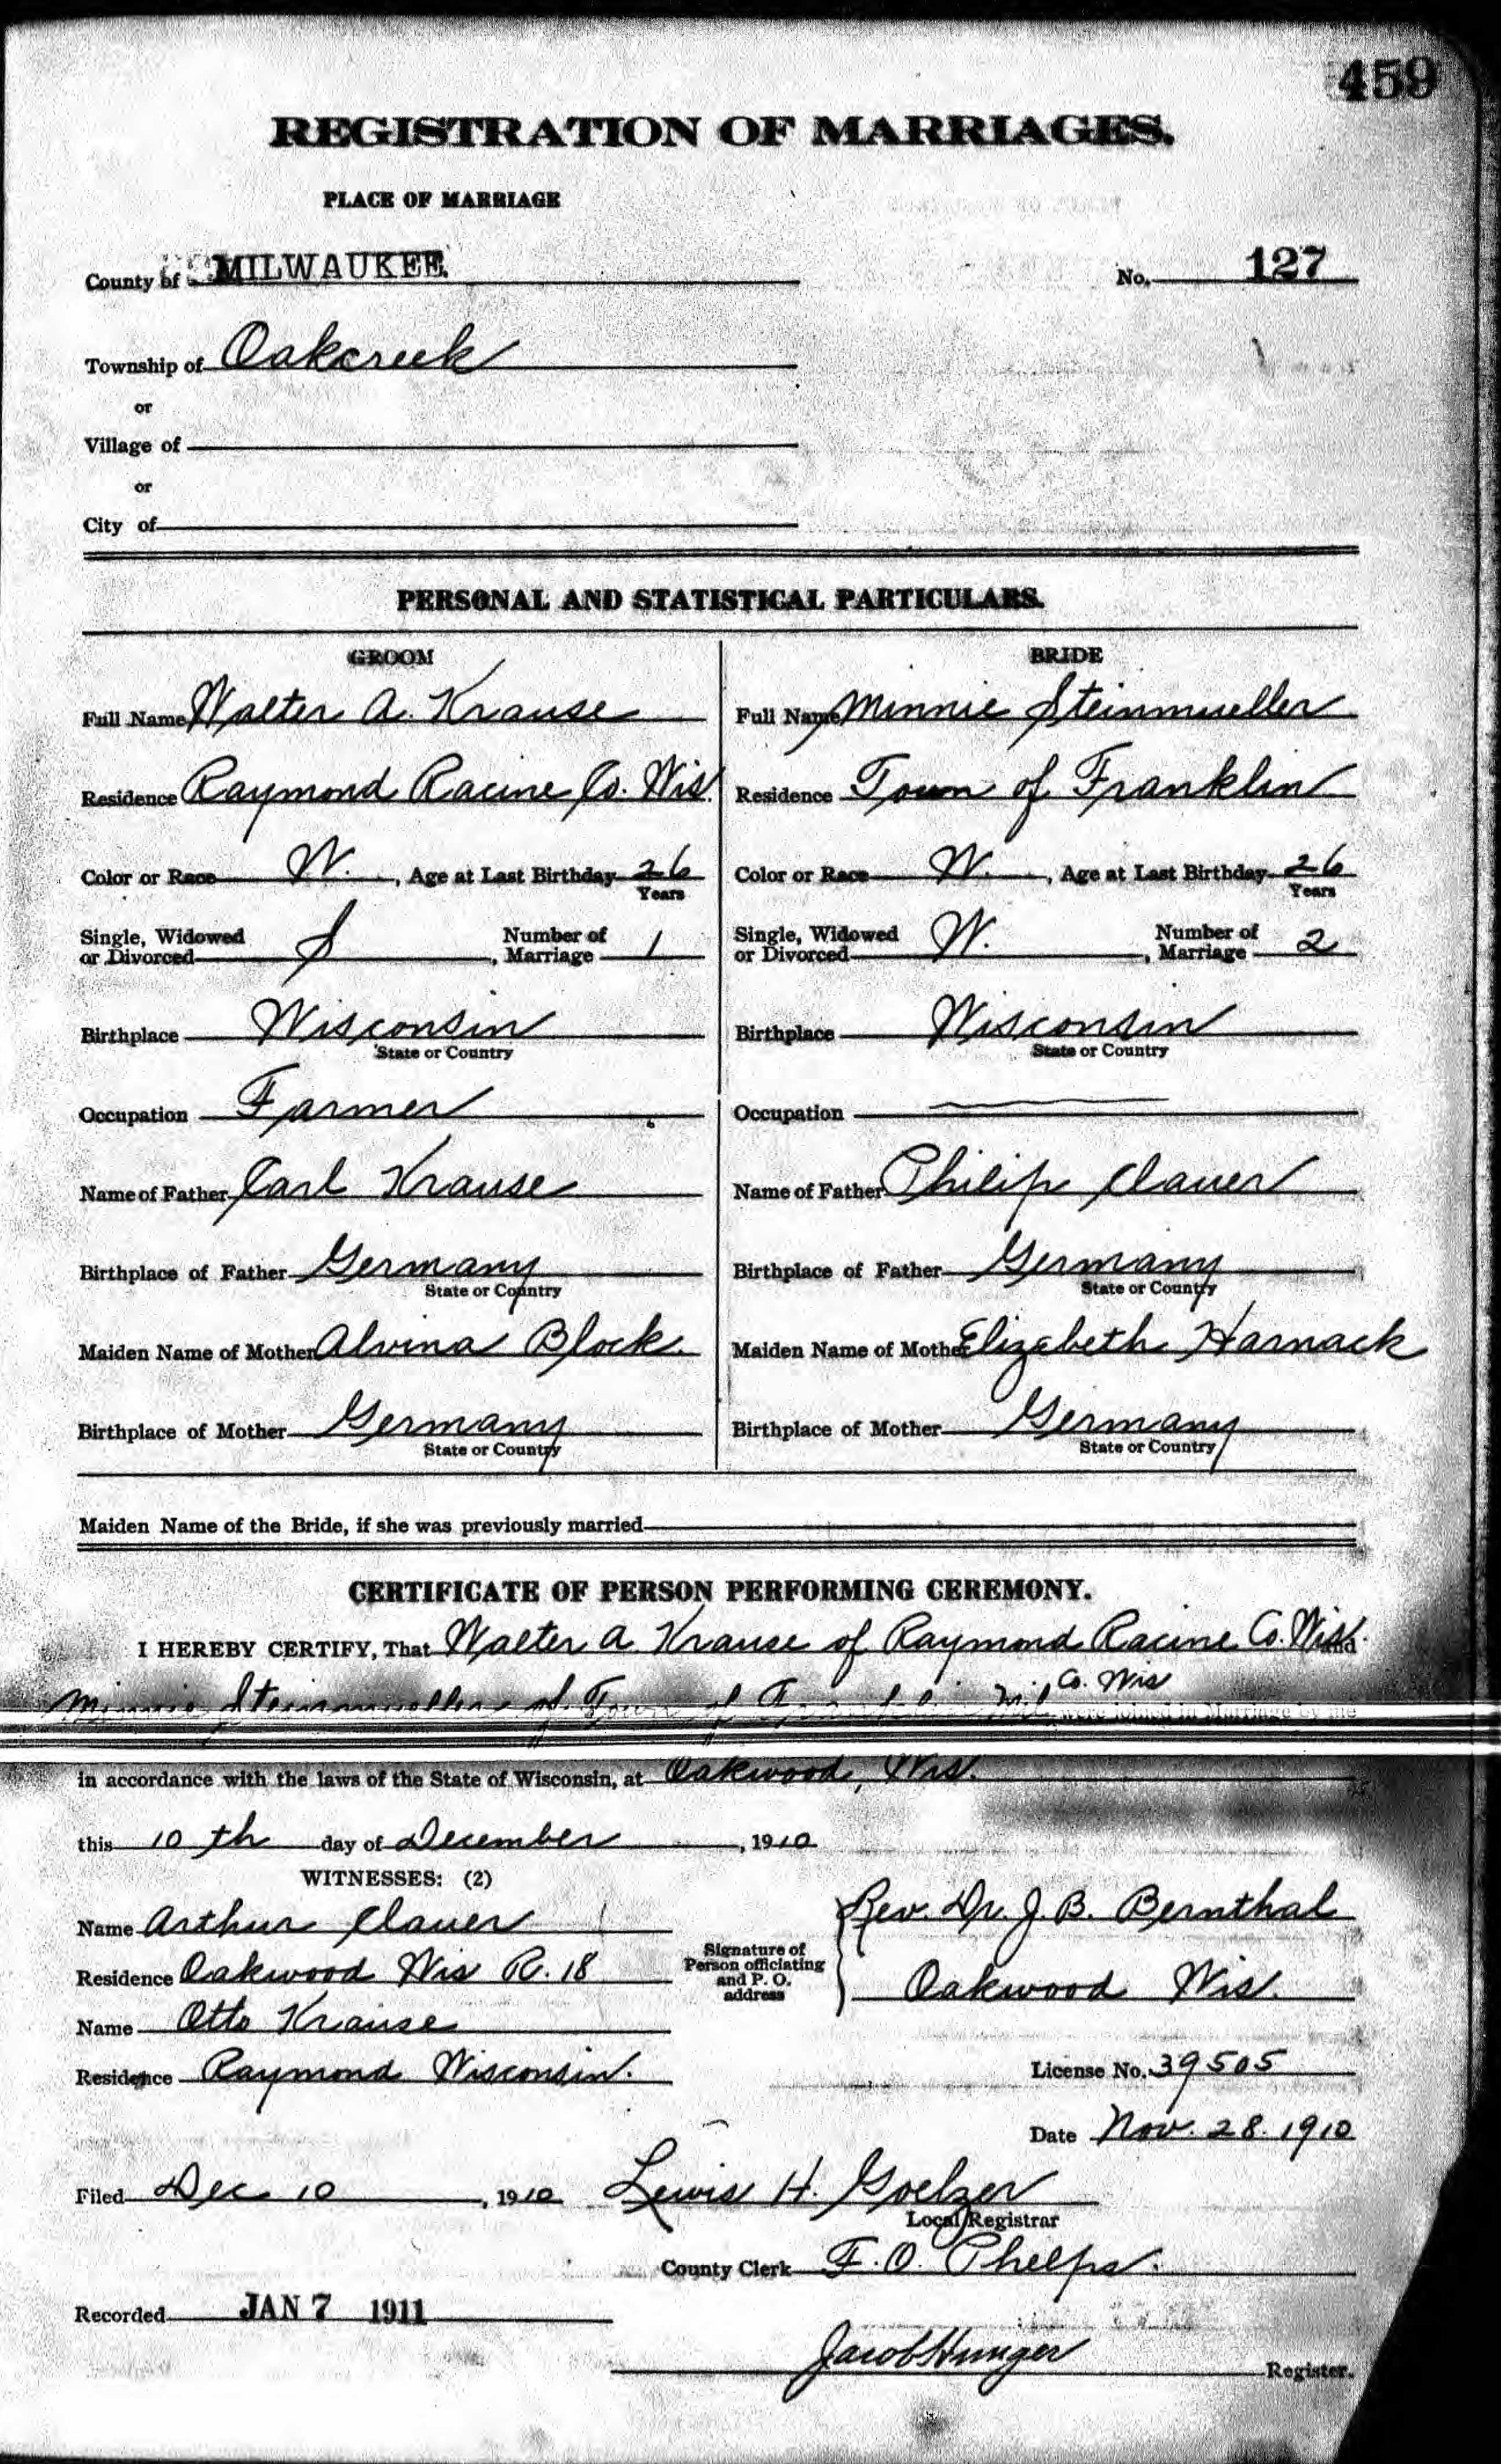 459
REGISTRATION OF MARRIAGES.
PLACE OF MARRIAGE
County of MILWAUKEE.
No. 127
Township of Oakcreek
or
Village of
or
City of
PERSONAL AND STATISTICAL PARTICULARS.
GROOM BRIDE
Full Name Walter A. Krause Full Name Minnie Steinmueller
Residence Raymond Racine Co. Wis. Residence Town of Franklin
Color or Race W. , Age at Last Birthday 26 Years Color or Race W. , Age at Last Birthday 26 Years
Single, Widowed or Divorced S , Number of Marriage 1 Single, Widowed or Divorced W. , Number of Marriage 2
Birthplace Wisconsin Birthplace Wisconsin
State or Country State or Country
Occupation Farmer Occupation
Name of Father Carl Krause Name of Father Philip Clauer
Birthplace of Father Germany Birthplace of Father Germany
State or Country State or Country
Maiden Name of Mother Alvina Block. Maiden Name of Mother Elizabeth Harnack
Birthplace of Mother Germany Birthplace of Mother Germany
State or Country State or Country
Maiden Name of the Bride, if she was previously married
CERTIFICATE OF PERSON PERFORMING CEREMONY.
I HEREBY CERTIFY, That Walter A Krause of Raymond Racine Co. Wis. and
Minnie Steinmueller of Town of Franklin Mil Co. Wis were joined in Marriage by me
in accordance with the laws of the State of Wisconsin, at Oakwood, Wis.
this 10th day of December , 1910
WITNESSES: (2)
Name Arthur Clauer
Residence Oakwood Wis R. 18
Name Otto Krause
Residence Raymond Wisconsin.
Signature of Person officiating and P. O. address
Rev. Dr. J. B. Bernthal
Oakwood Wis.
License No. 39505
Date Nov. 28. 1910
Filed Dec 10 , 1910 Lewis H. Goelzer
Local Registrar
County Clerk F. O. Phelps.
Recorded JAN 7 1911
Jacob Hunger Register.